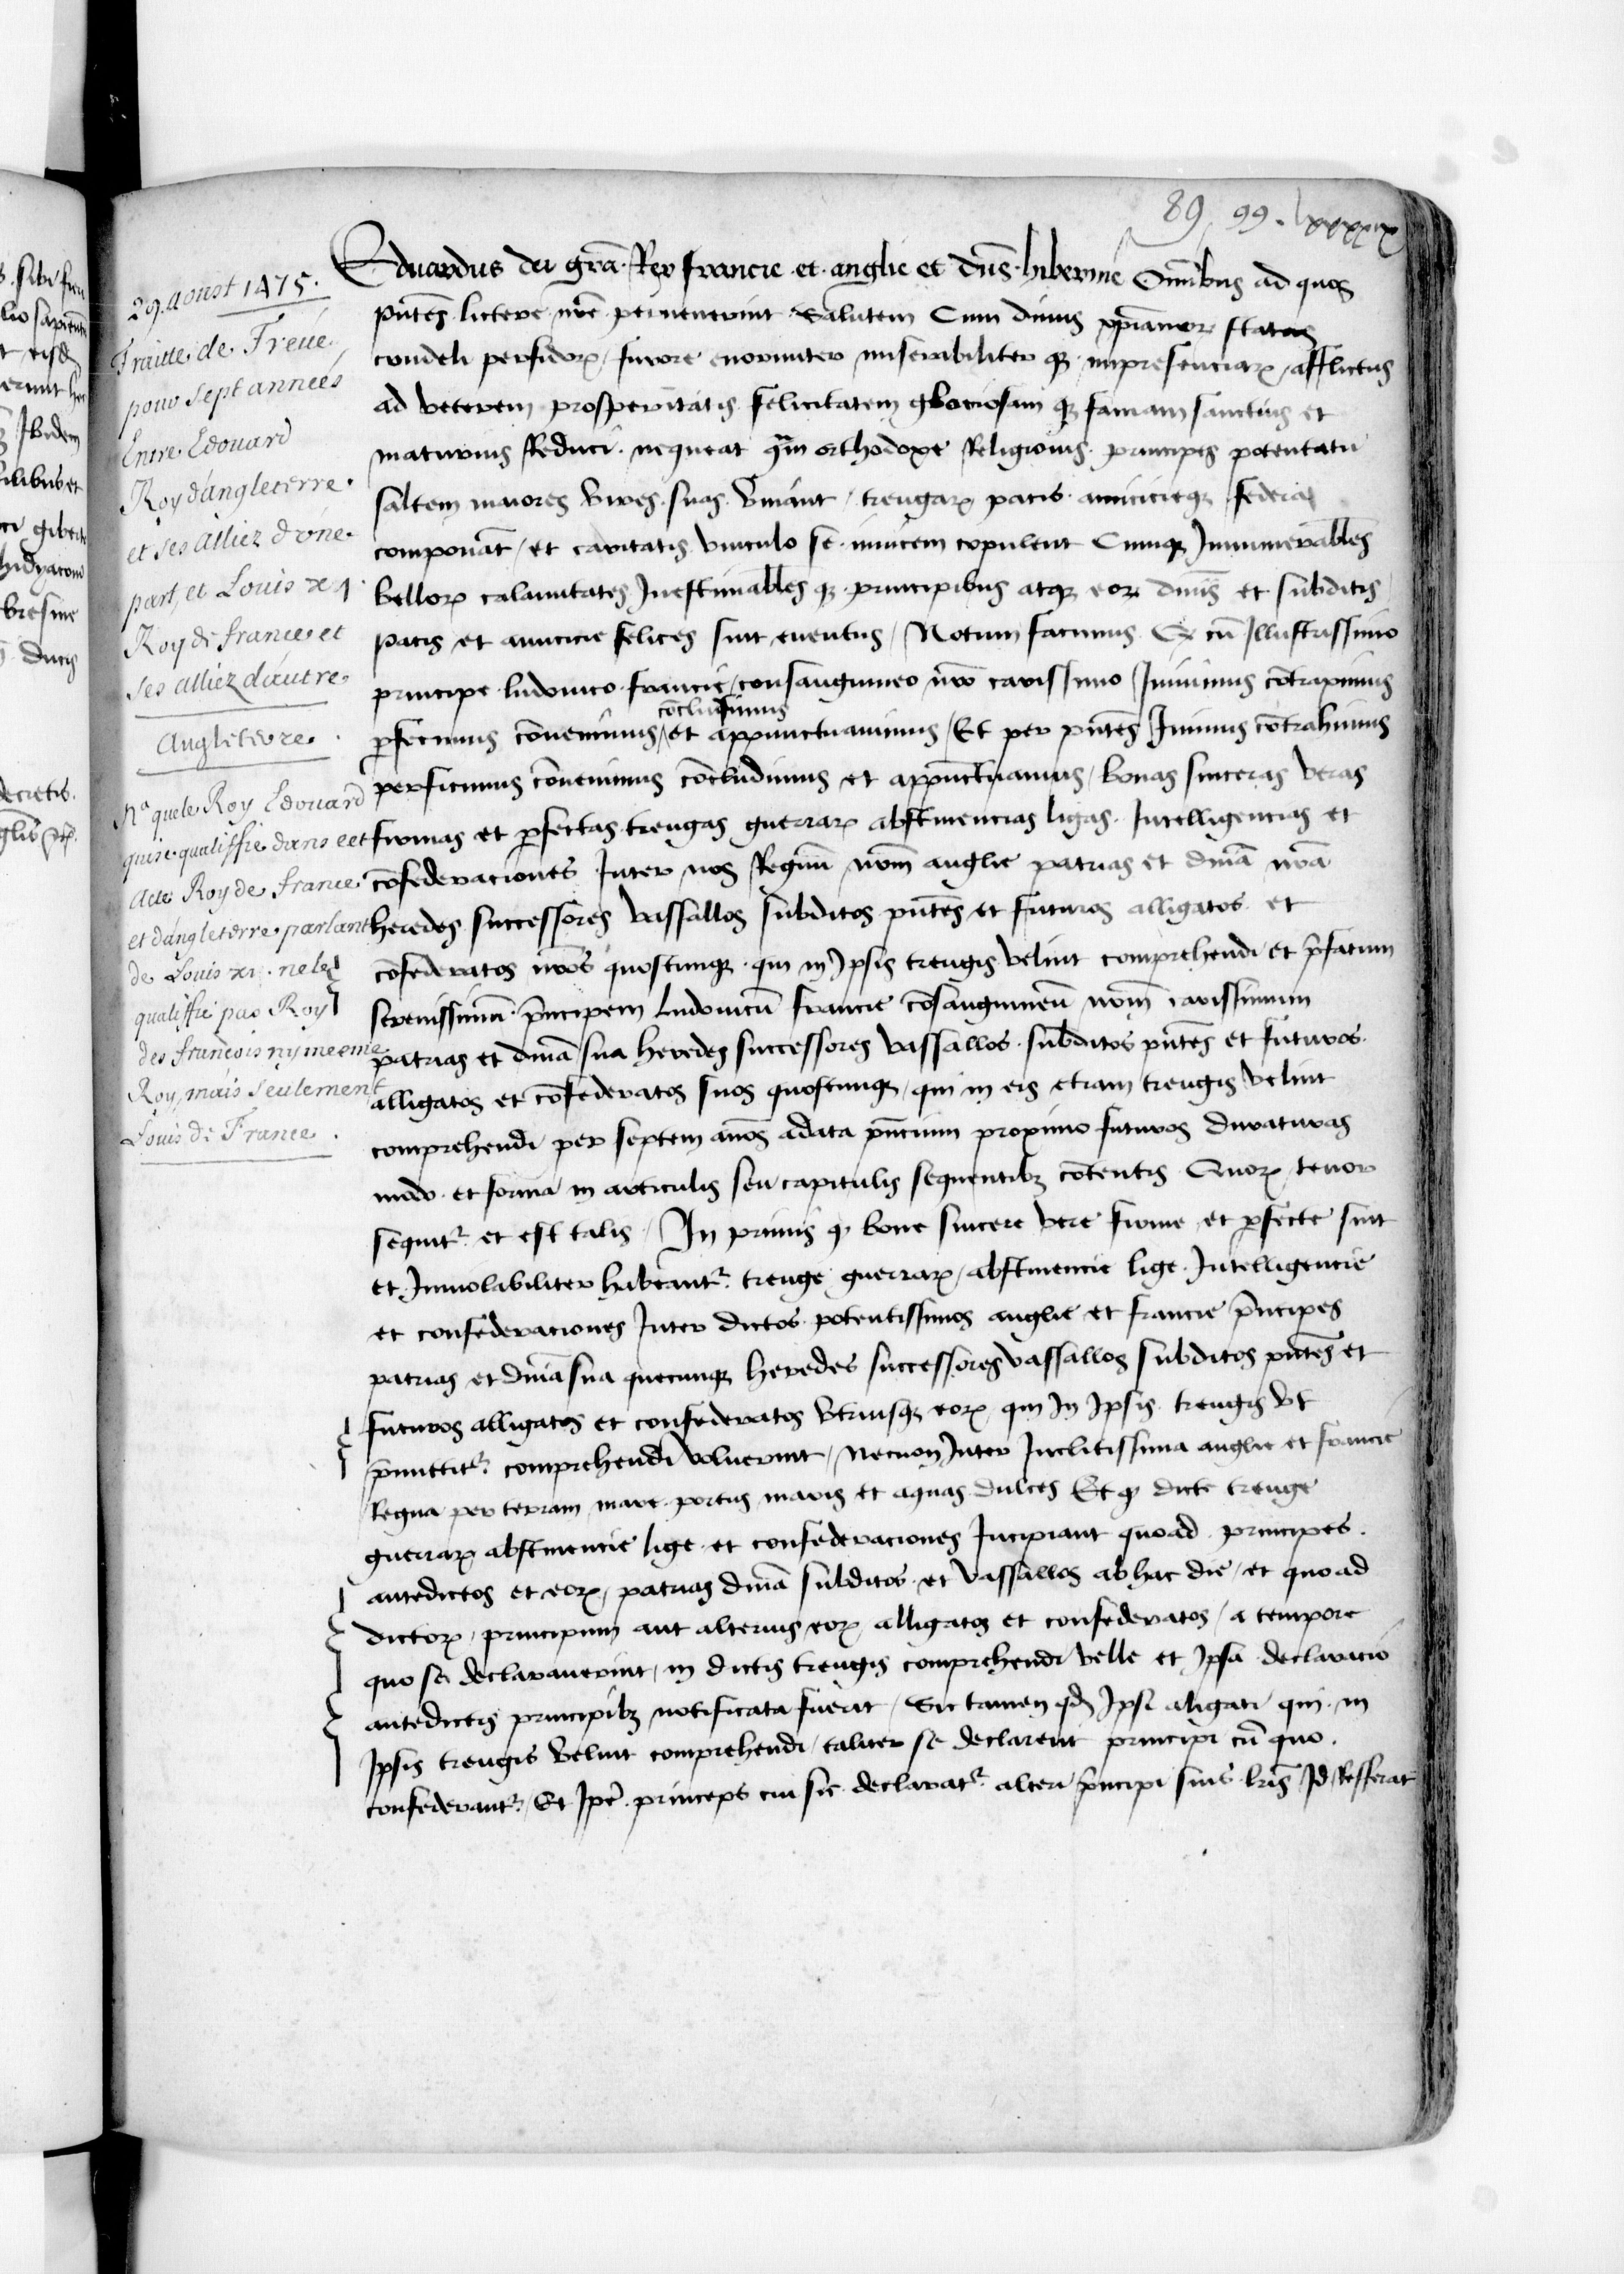 89, 99. lxxxxix
29. Aoust 1475.
Traitté de Treue
pour sept années
Entre Edouard
Roy d'angleterre
et ses alliez d'vne
part, et Louis xi
Roy de france et
ses alliez d'autre
Angleterre.
Na que le Roy Edouard
qui se qualiffie dans cet
acte Roy de france
et d'angleterre parlant
de Louis xi. ne le
qualiffie pas Roy
des francois ny mesme
Roy, mais seulement
Louis de France.
Eduardus dei gr̄a Rex francie et anglie et dn̄s hibernie Om̄ibus ad quos
pn̄tes lictere nr̄e peruenerint Salutem Cum diuus xp̄ianor status
crudeli perfidorꝝ furore enormiter miserabiliter qꝫ impresenciarꝝ afflictus
ad veterem prosperitatis felicitatem gloriosam qꝫ famam sanctius et
maturius Reduci nequeat qͣm orthodoxe Religionis principes potentatu
saltem maiores vires suas vniant / treugarꝝ pacis amicicieqꝫ federa
componāt / et caritatis vinculo se inuicem copulent Cumqꝫ Innumerables
bellorꝝ calamitates Inestimables qꝫ principibus atqꝫ eorꝝ dn̄iis et subditis
pacis et amicicie felices sint euentus / Notum facimus Qͩ cū Illustrissimo
principe ludouico francie / consanguineo nr̄o carissimo / Iniuimus cōtraximus
ꝑfecimus cōuenimus / conclusimus et appunctuauimus / Et per pn̄tes Inimus cōtrahimus
perficimus cōuenimus cōcludimus et appūctuamus / bonas sinceras veras
firmas et ꝑfectas treugas guerrarꝝ abstinencias ligas Intelligencias et
cōfederaciones Inter nos Regnū nr̄m anglie patrias et dn̄ia nr̄a
heredes successores vassallos subditos pn̄tes et futuros alligatos et
cōfederatos nr̄os quoscunqꝫ qui in Ipsis treugis velint comprehendi et p̄fatum
serenissimū p̄ncipem ludouicū francie cōsanguineū nr̄m carissimum
patrias et dn̄ia sua heredes successores vassallos subditos pn̄tes et futuros
alligatos et cōfederatos suos quoscunqꝫ / qui in eis etiam treugis velint
comprehendi per septem ānos a data pn̄cium proximo futuros duraturas
modo et forma in articulis seu capitulis sequentibꝫ cōtentis Quorꝝ tenor
sequitᷣ et est talis / In primis qͩ bone sincere vere firme et ꝑfecte sint
et Inuiolabiliter habeantᷣ treuge guerrarꝝ / abstinencie lige Intelligencie
et confederaciones Inter dictos potentissimos anglie et francie p̄ncipes
patrias et dn̄ia sua quecunqꝫ heredes successores vassallos subditos pn̄tes et
futuros alligatos et confederatos vtriusqꝫ eorꝝ qui In Ipsis treugis vt
p̄mittitᷣ comprehendi voluerint / Necnon Inter Inclitissima anglie et francie
Regna per terram mare portus maris et aquas dulces Et qͩ dicte treuge
guerrarꝝ abstinencie lige et confederaciones Incipiant quoad principes
antedictos et eorꝝ / patrias dn̄ia subditos et vassallos ab hac die / et quoad
dictorꝝ / principum aut alterius eorꝝ alligatos et confederatos / a tempore
quo se declarauerint / in dictis treugis comprehendi velle et Ipsa declaracio
antedictis principibꝫ notificata fuerit / Sic tamen qd̄ Ipsi aligati qui in
Ipsis treugis velint comprehendi / taliter se declarent principi cū quo
confederantᷣ / Et Ip̄e princeps cui sic declaratᷣ alteri p̄ncipi suis lr̄is Id Refferat